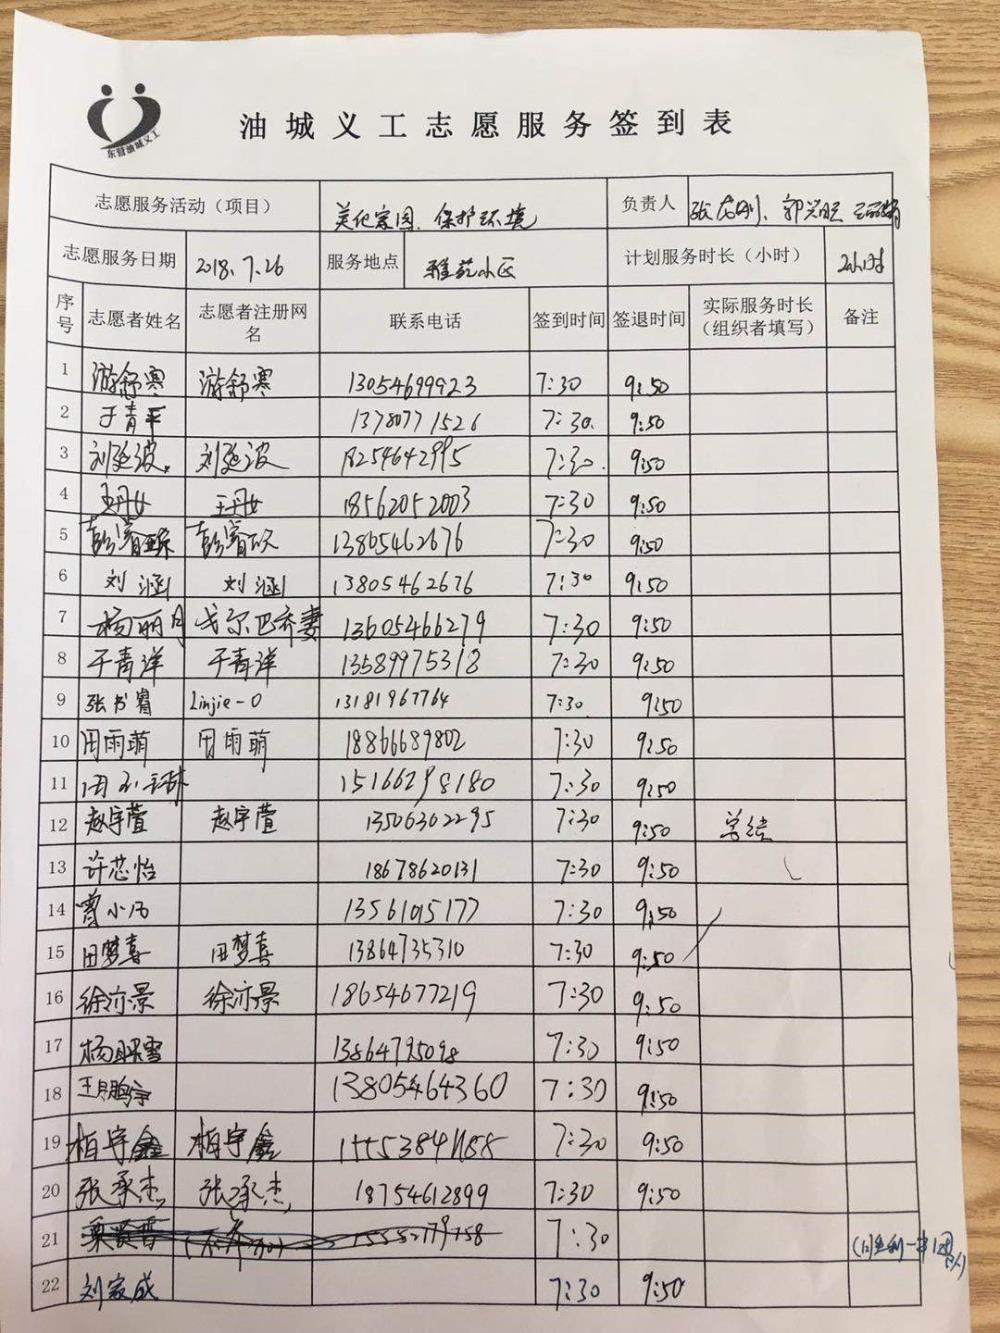 东营油城义工
油城义工志愿服务签到表
志愿服务活动（项目） 美化家园、保护环境 负责人
志愿服务日期 2018.7.26 服务地点 雅苑小区 计划服务时长（小时） 2小时
序号 志愿者姓名 志愿者注册网名 联系电话 签到时间 签退时间 实际服务时长（组织者填写） 备注
1 游舒寒 游舒寒 13054699923 7:30 9:50
2 于青平 13780771526 7:30 9:50
3 刘延波 刘延波 18254642995 7:30 9:50
4 王丹女 王丹女 18562052003 7:30 9:50
5 13805462676 7:30 9:50
6 刘涵 刘涵 13805462676 7:30 9:50
7 杨丽月 戈尔巴乔妻 13605466279 7:30 9:50
8 于青洋 于青洋 13589975318 7:30 9:50
9 张书睿 Linjie-O 13181967764 7:30 9:50
10 周雨萌 周雨萌 18866689802 7:30 9:50
11 15166298180 7:30 9:50
12 赵宇萱 赵宇萱 13506362295 7:30 9:50 总结
13 许芯怡 18678620131 7:30 9:50
14 曹小 13561015177 7:30 9:50
15 田梦喜 田梦喜 13864735310 7:30 9:50
16 徐亦景 徐亦景 18654677219 7:30 9:50
17 杨 雪 13864795098 7:30 9:50
18 王鹏宇 13805464360 7:30 9:50
19 柏宇鑫 柏宇鑫 7:30 9:50
20 张承杰 张承杰 18754612899 7:30 9:50
21 7:30
22 刘家成 7:30 9:50